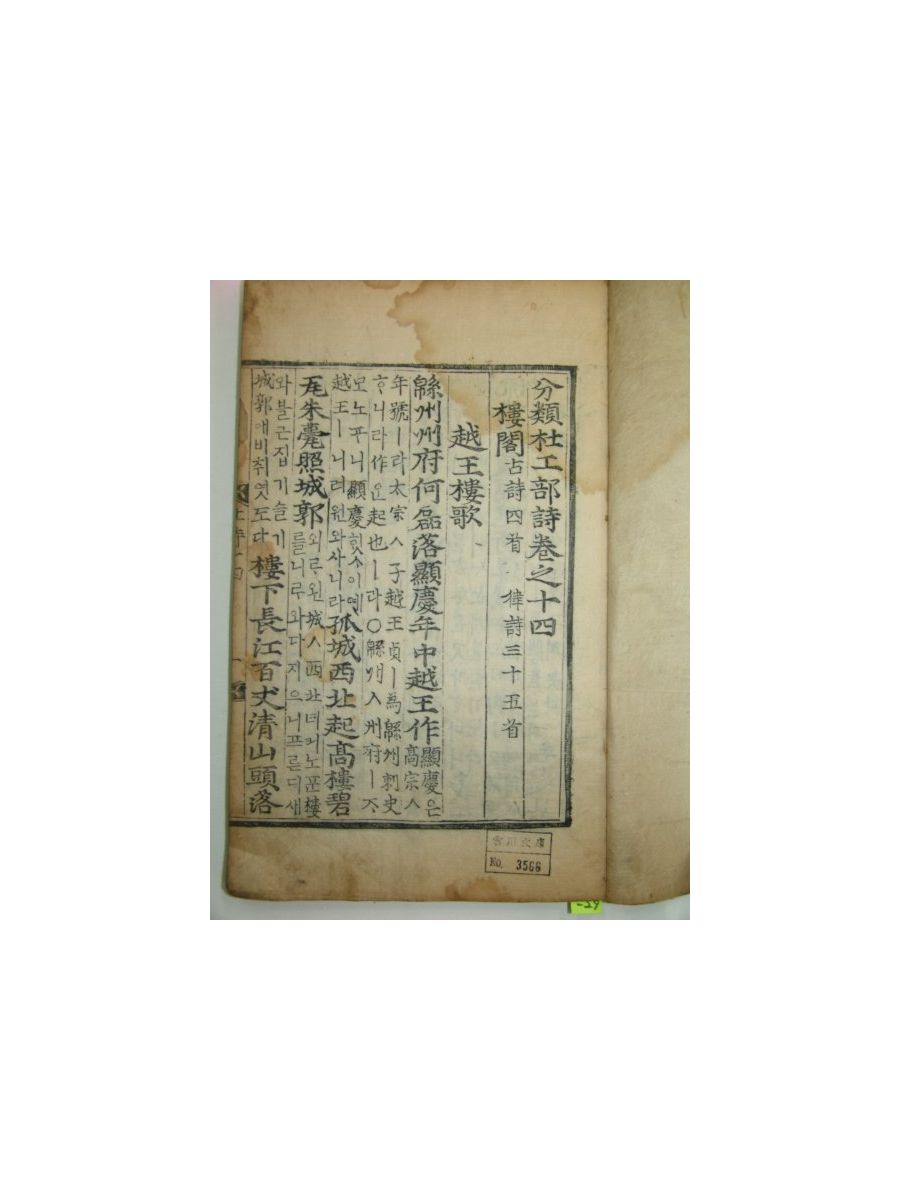 分類杜工部詩卷之十四
樓閣 古詩四首 律詩三十五首
越王樓歌
緜州州府何磊落顯慶年中越王作 顯慶은高宗ㅅ
年號ㅣ라太宗ㅅ子越王貞ㅣ爲緜州刺史
ᄒᆞ니라作은起也ㅣ라○緜州ㅅ州府ㅣ
모노푸니顯慶ㅅ
越王ㅣ니려원와사니라 孤城西北起高樓碧
瓦朱甍照城郭 외ᄅᆞ왼城ㅅ西北녀긔노ᄑᆞᆫ樓
ᄅᆞᆯ니ᄅᆞ와다지으니프른디새
와블근집기슬기
城郭애비취엿도다 樓下長江百丈清山頭落
No. 3566